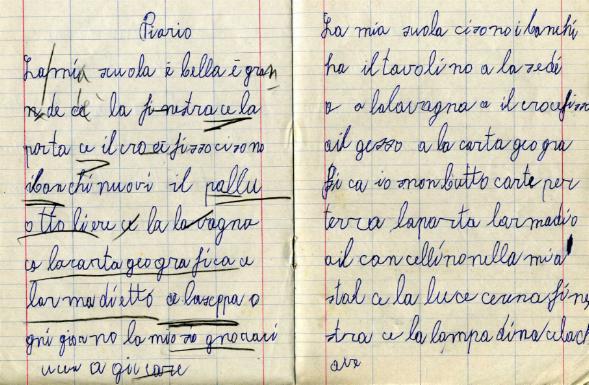 Piario
La mia scuola è bella è gran
n de cè la finestra ce la
porta ce il cro ci fisso ci sono
i banchi nuovi il pallu
ottoliere ce la lavagna
ce la carta geografica ce
larmadietto ce la seppa o
gni giorno la mia signora ci
a giucare
La mia suola ci sono i banchi
ha il tavolino a la sedi
a a la lavagna a il crocefisso
a il gesso a la carta geogra
fica io non butto carte per
terra la porta larmadio
a il cancellino nella mia
ce la luce ce una fine
stra ce la lampadina ce la